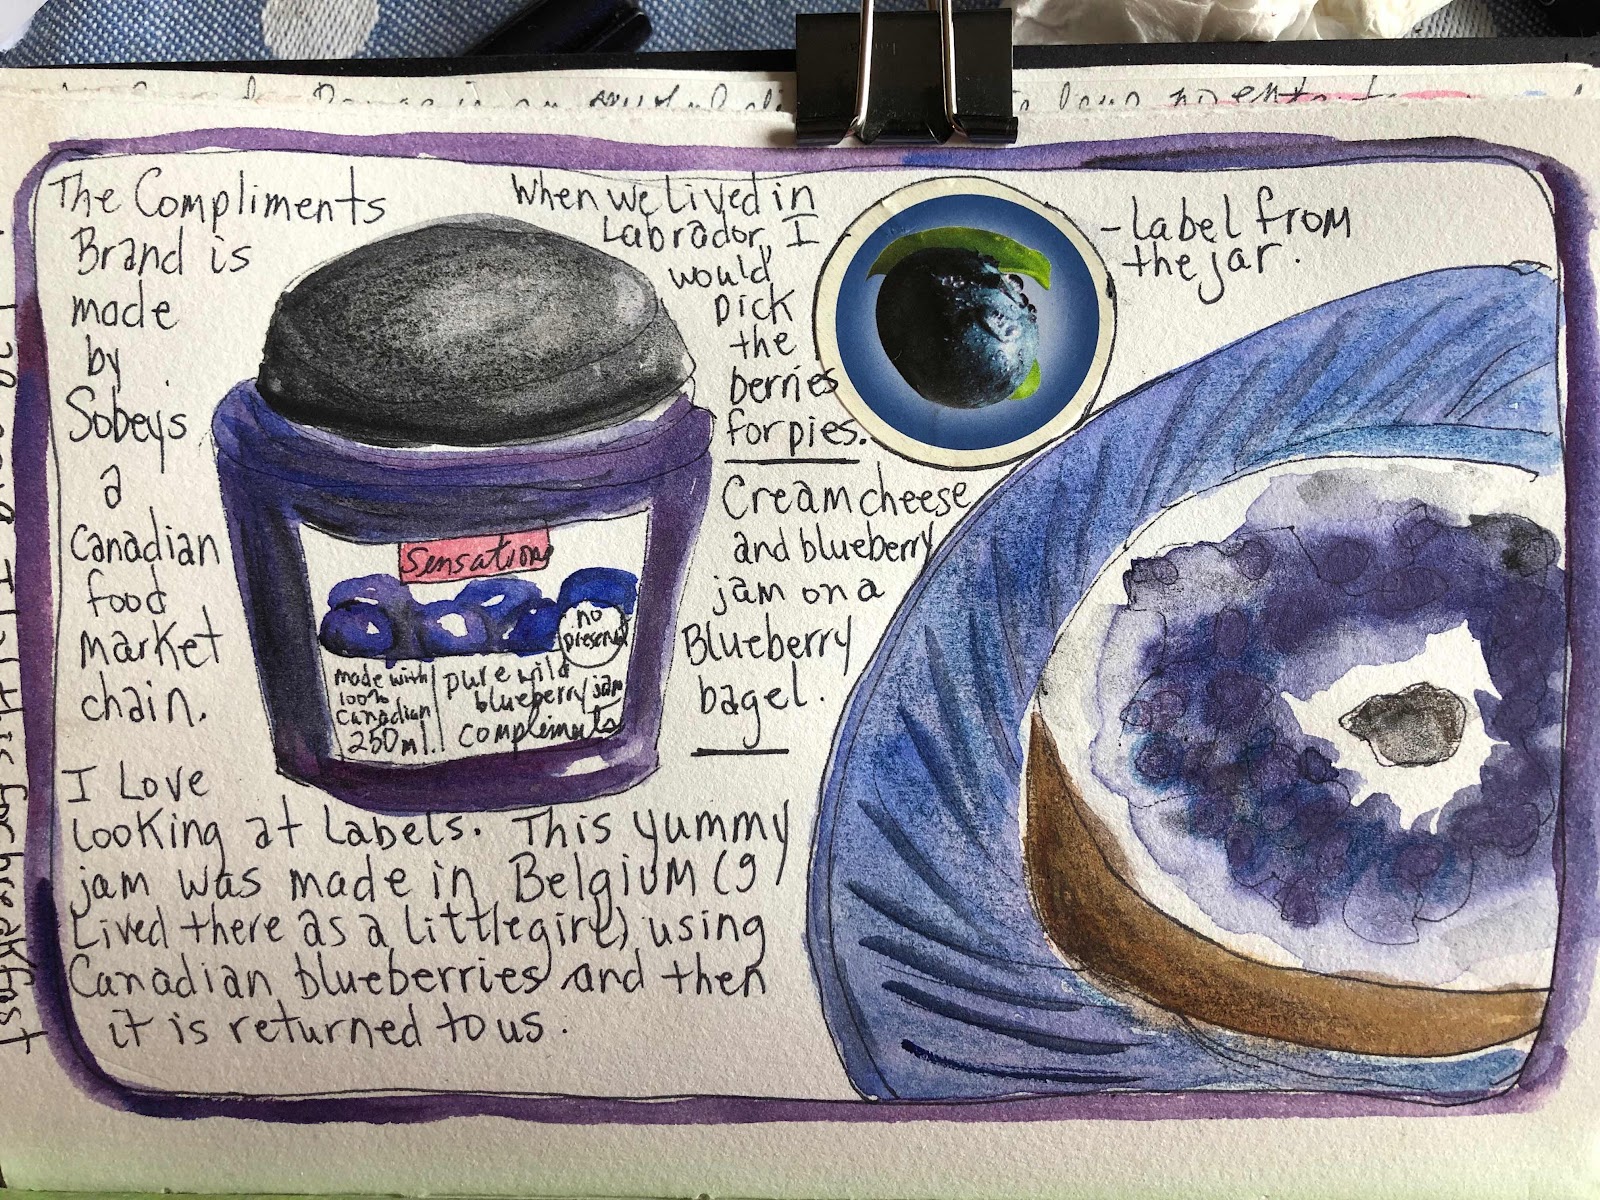 The Compliments
Brand is
made
by
Sobeys
a
Canadian
food
market
chain.
When we Lived in
Labrador, I
would
pick
the
berries
for pies.
- Label from
the jar.
Cream cheese
and blueberry
jam on a
Blueberry
bagel.
Sensations
no
preservat
made with
100%
Canadian
250 ml.
pure wild
blueberry jam
compliments
I Love
Looking at Labels. This yummy
jam was made in Belgium (I
Lived there as a little girl) using
Canadian blueberries and then
it is returned to us.
breakfast